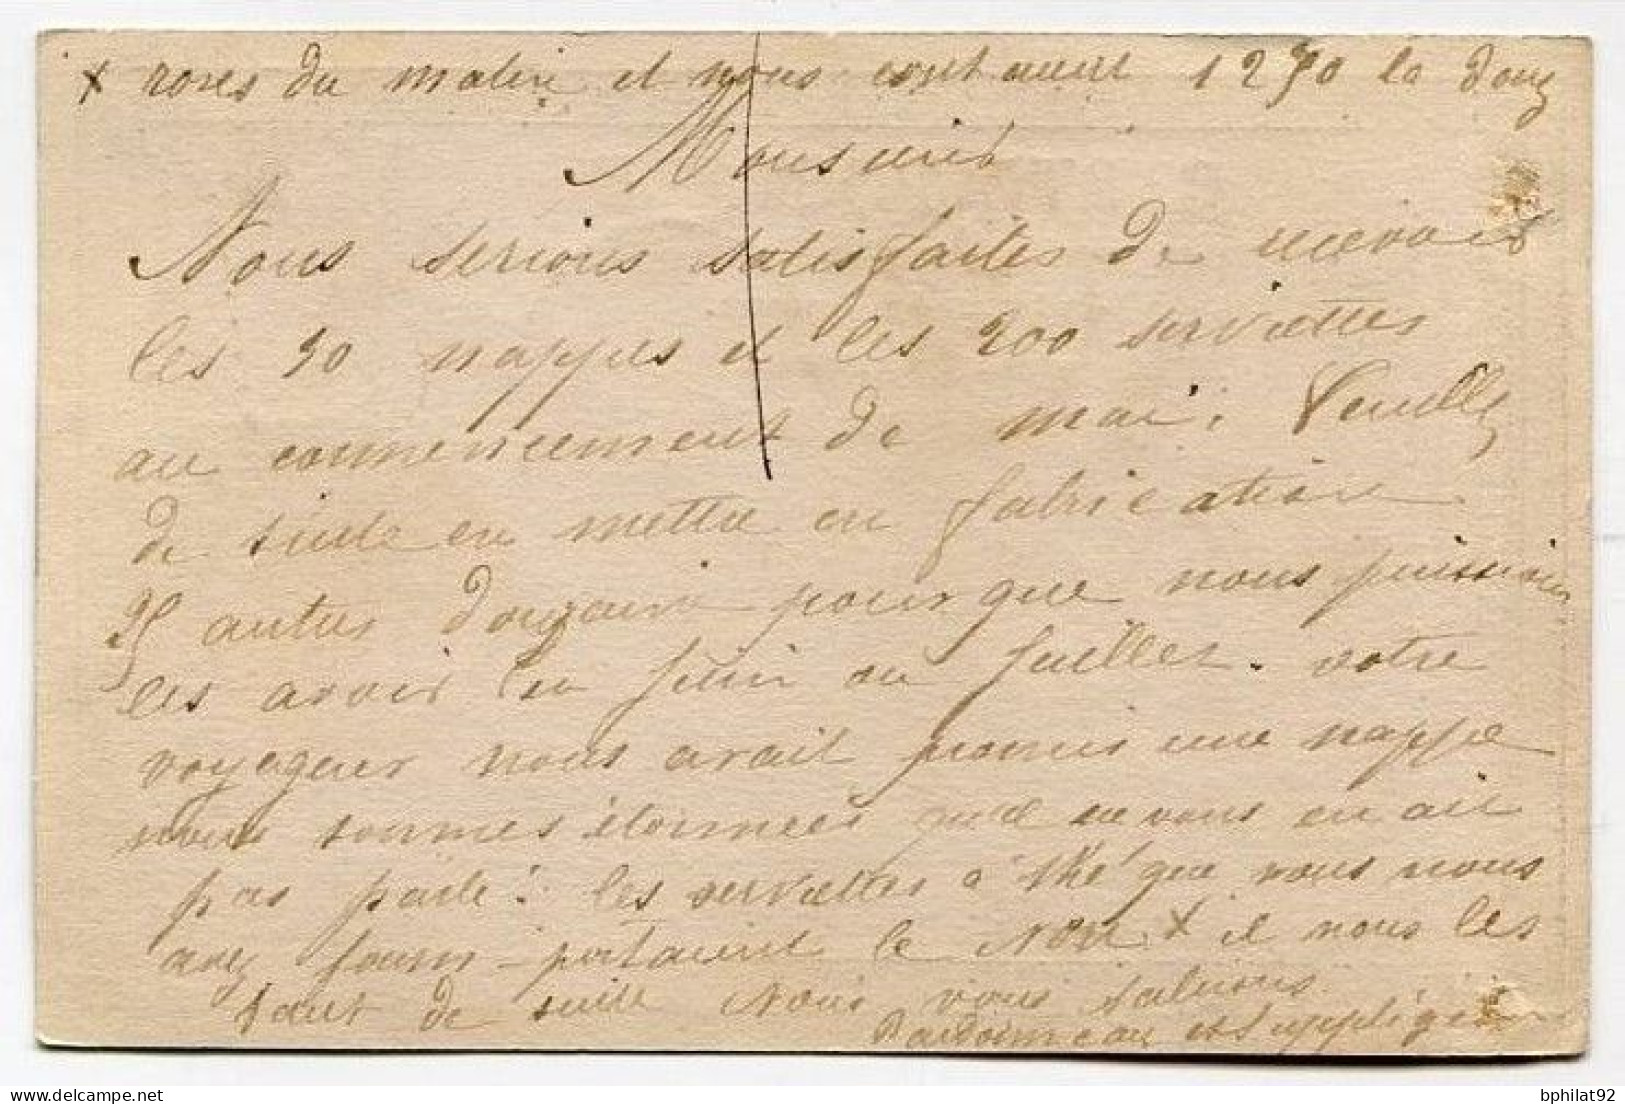 x roses du matin et nous content 12 70 la douz
Monsieur
Nous serions satisfaites de recevoir
les 50 nappes et les 200 serviettes
au commencement de mai. Veuillez
de suite en mettre en fabrication
25 autres douzaine pour que nous puissions
les avoir en juin ou juillet. votre
voyageur nous avait promis une nappe
nous sommes étonnées que vous en ait
pas parlé. les serviettes à thé que vous nous
avez fourni portaient le nom x il nous les
faut de suite Nous vous saluons
et
bphilat92